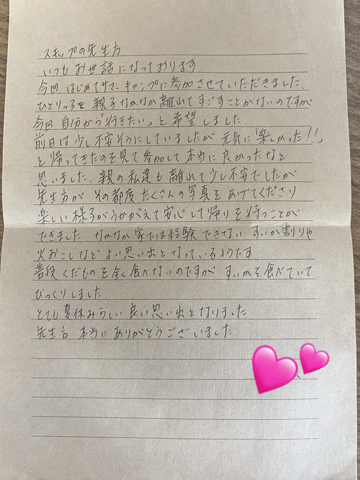 スキップの先生方
いつもお世話になっております
今回 はじめてサマーキャンプに参加させていただきました
ひとりっ子で親子なかなか離れてすごすことがないのですが
今回 自分から行きたい、と希望しました
前日は少し不安そうにしていましたが 元気に「楽しかった!!」
と帰ってきたのを見て参加して本当に良かったなと
思いました。親の私達も離れて少し不安でしたが
先生方が その都度たくさんの写真をあげてくださり
楽しい様子がうかがえて安心して帰りを待つことが
できました なかなか家では経験できない すいか割りや
火おこしなど よい思い出となっているようです
普段くだものを全く食べないのですが すいかを食べていて
びっくりしました
とても夏休みらしい良い思い出となりました
先生方 本当にありがとうございました